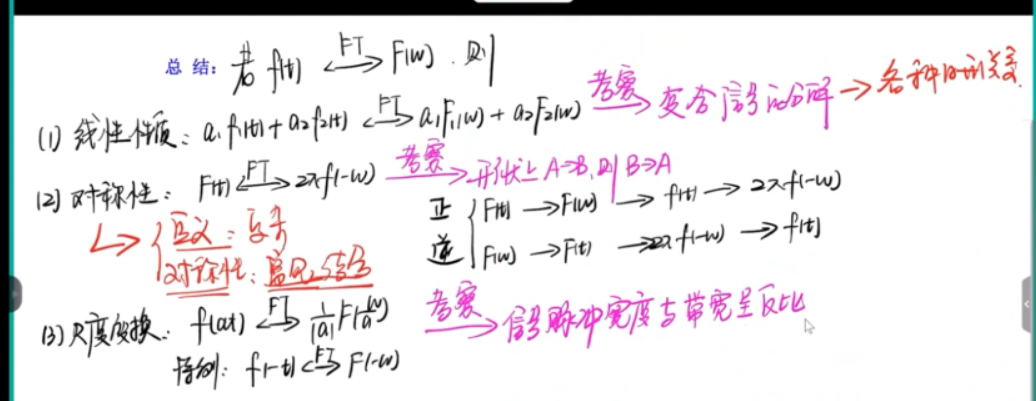 总结: 若 f(t) ←FT→ F(ω). 则
(1) 线性性质: a₁f₁(t)+a₂f₂(t) ←FT→ a₁F₁(ω)+a₂F₂(ω) 考察→ 复合信号的分解 → 各种时频关系
(2) 对称性: F(t) ←FT→ 2πf(-ω) 考察→ 形状上 A→B, 则 B→A
正 { F(t) → F(ω) → f(t) → 2πf(-ω)
↳ { 定义:
逆 { F(ω) → F(t) → 2πf(-ω) → f(t)
对称性: 常见结合
(3) 尺度变换: f(at) ←FT→ 1/|a| F(ω/a) 考察→ 信号脉冲宽度与带宽呈反比
特例: f(-t) ←FT→ F(-ω)